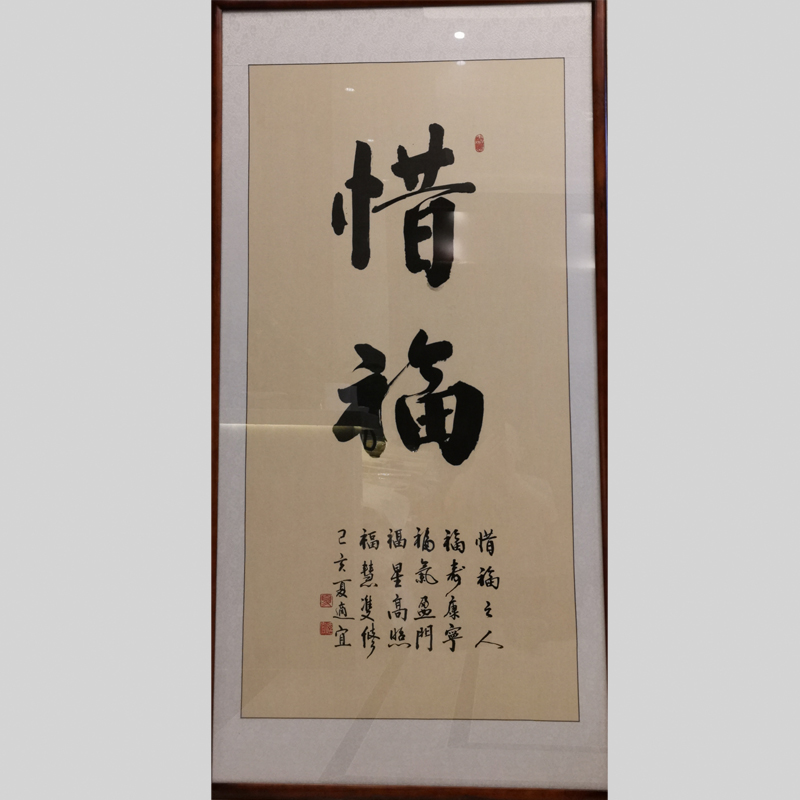 惜
福
惜福之人
福寿康寧
福氣盈門
福星高照
福慧雙修
己亥夏適宜